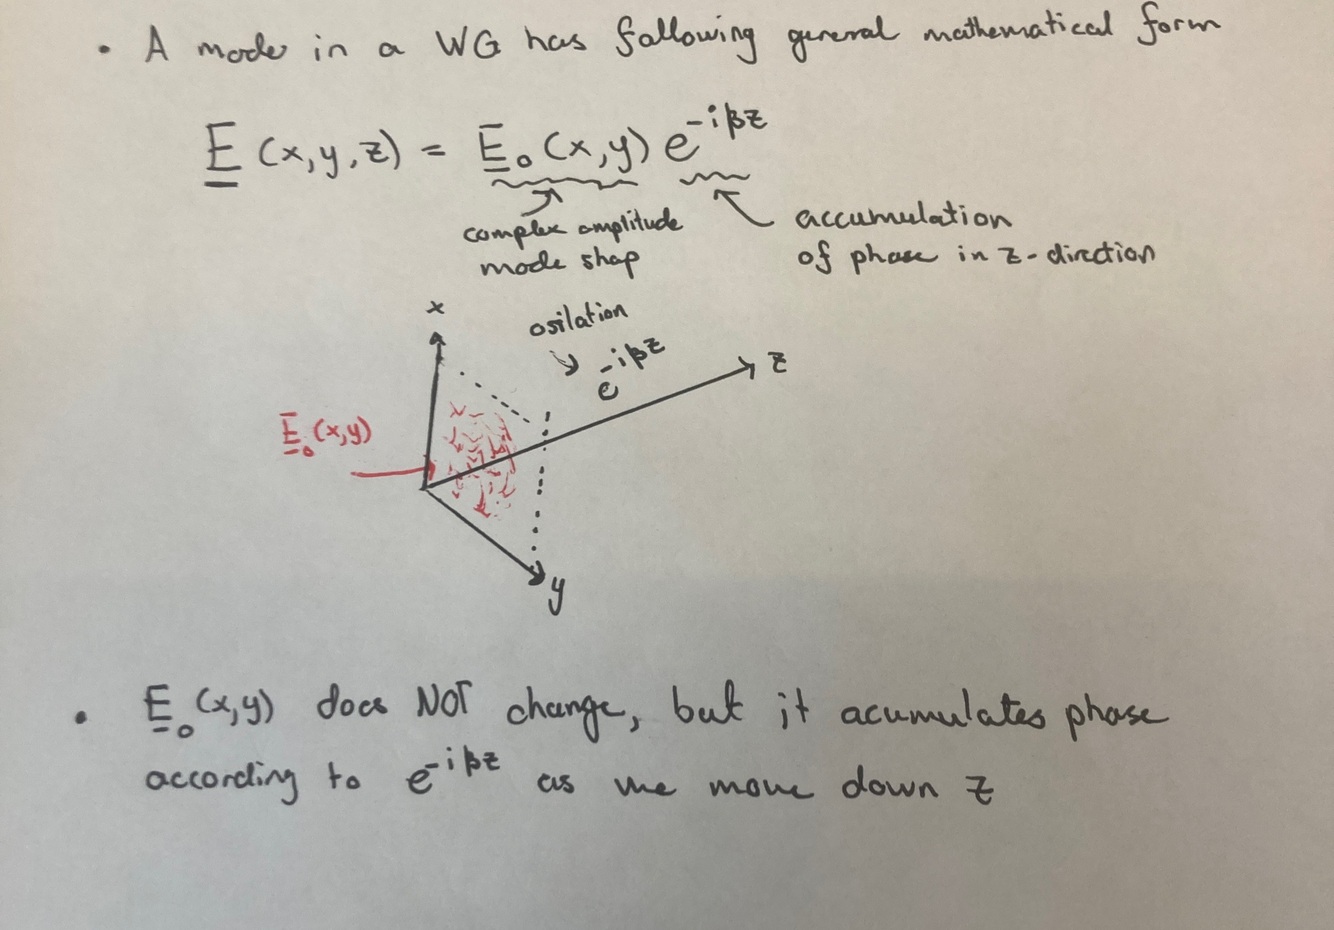 • A mode in a WG has following general mathematical form
E (x,y,z) = E₀ (x,y) e^{-iβz}
complex amplitude
mode shap
accumulation
of phase in z-direction
x
osilation
e^{-iβz}
z
E₀(x,y)
y
• E₀(x,y) does NOT change, but it acumulates phase
according to e^{-iβz} as we move down z